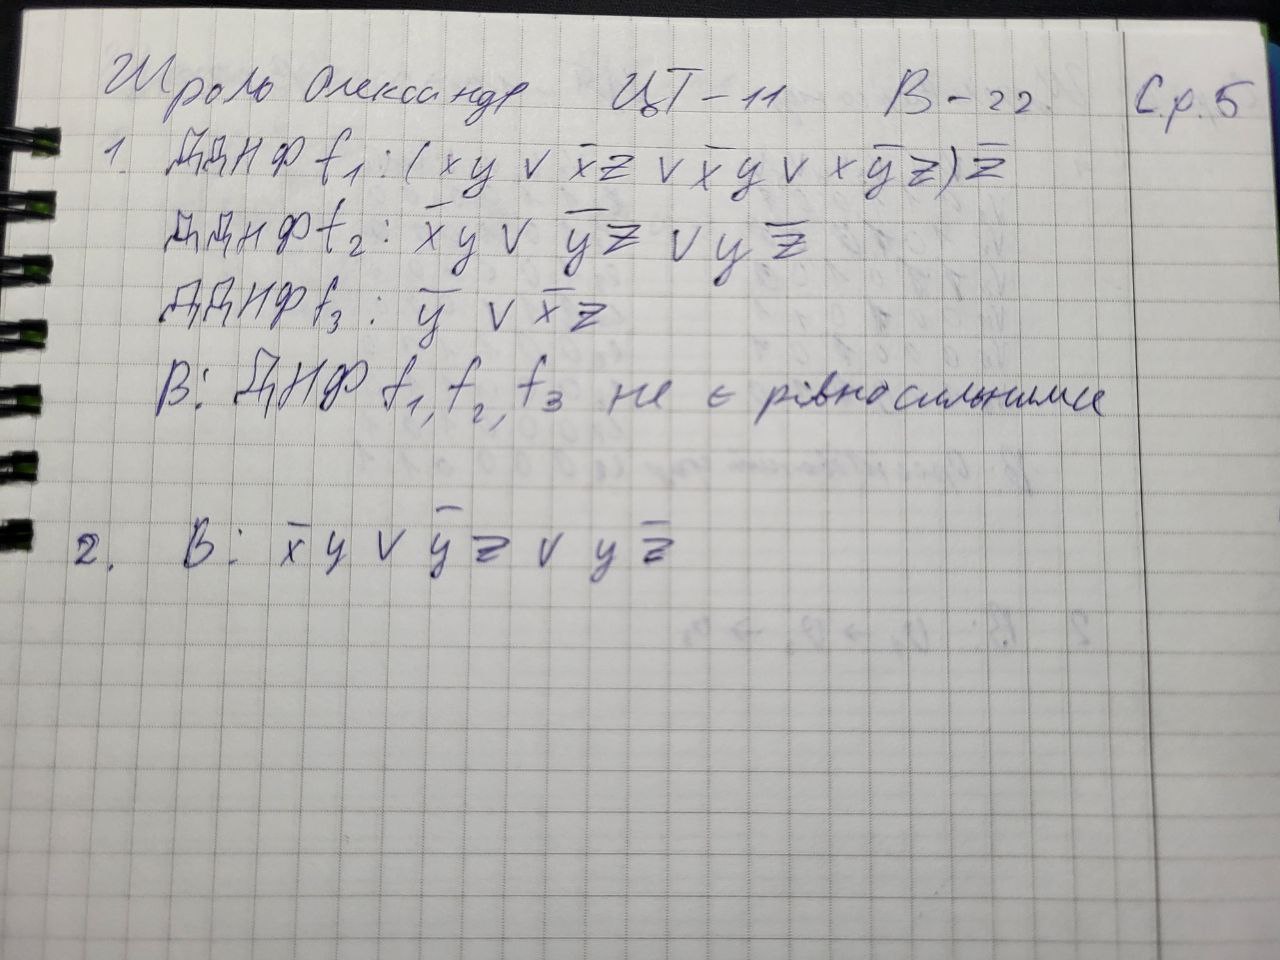 Шроль Олександр ЦТ-11 В-22. С.р.5
1. ДДНФ f₁: (xy ∨ x̄z ∨ x̄y ∨ xȳz)z̄
ДДНФ f₂: x̄y ∨ ȳz ∨ yz̄
ДДНФ f₃: ȳ ∨ x̄z
В: ДНФ f₁, f₂, f₃ не є рівносильними
2. В: x̄y ∨ ȳz ∨ yz̄